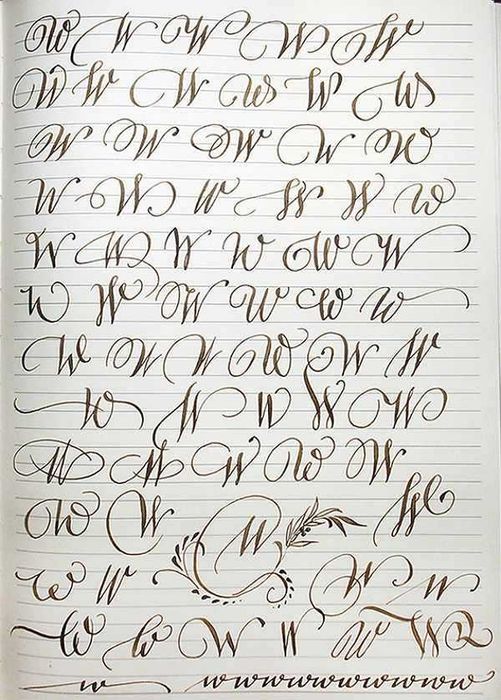 W W W W W
W W W W W W
W W W W W
W W W W W W
W W W W W W
W W W W W W
W W W W W W
W W W W W
W W W W W
W W W W
W W W W
W W W W W W
w wwwwwwwwwww